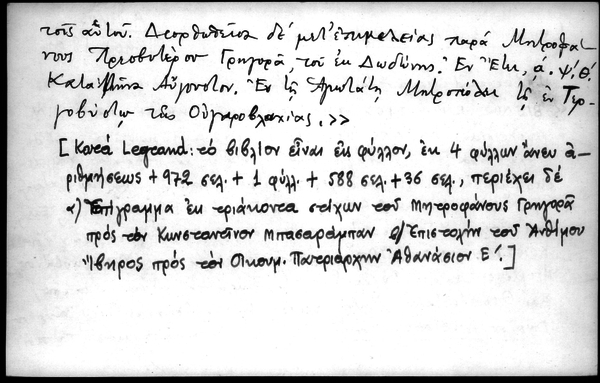 τοῖς αὐτοῦ. Διορθωθεῖσα δέ μετ' ἐπιμελείας παρά Μητροφά-
νους Πρεσβυτέρου Γρηγορᾶ, τοῦ ἐκ Δωδώνης. Ἐν Ἔτει, ά. ψ'. θ'.
Κατά Μῆνα Αὔγουστον. Ἐν τῇ Ἁγιωτάτῃ Μητροπόλει τῇ ἐν Τερ-
γοβύστῳ τῆς Οὑγγαροβλαχίας.>>
[Κατά Legrand: τό βιβλίον εἶναι εἰς φύλλον, ἐκ 4 φύλλων ἄνευ ἀ-
ριθμήσεως + 972 σελ. + 1 φύλλ. + 588 σελ. + 36 σελ., περιέχει δέ
α) Ἐπίγραμμα ἐκ τριάκοντα στίχων τοῦ Μητροφάνους Γρηγορᾶ
πρός τόν Κωνσταντῖνον Μπασαράμπαν β) Ἐπιστολήν τοῦ Ἀνθίμου
Ἴβηρος πρός τόν Οἰκουμ. Πατριάρχην Ἀθανάσιον Ε'.]